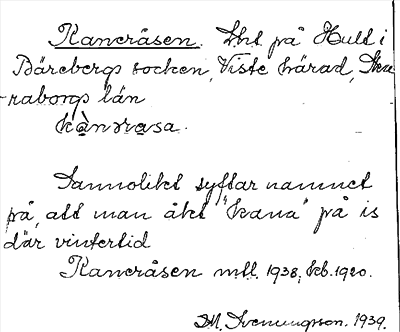 Kaneråsen. Skt på Hult i
Bärebergs socken, Viste härad, Ska-
raborgs län
kànɐrasa.
Sannolikt syftar namnet
på, att man åkt "kana" på is
där vintertid
Kaneråsen mtl. 1938, kb. 1920.
M. Svenungson. 1939.